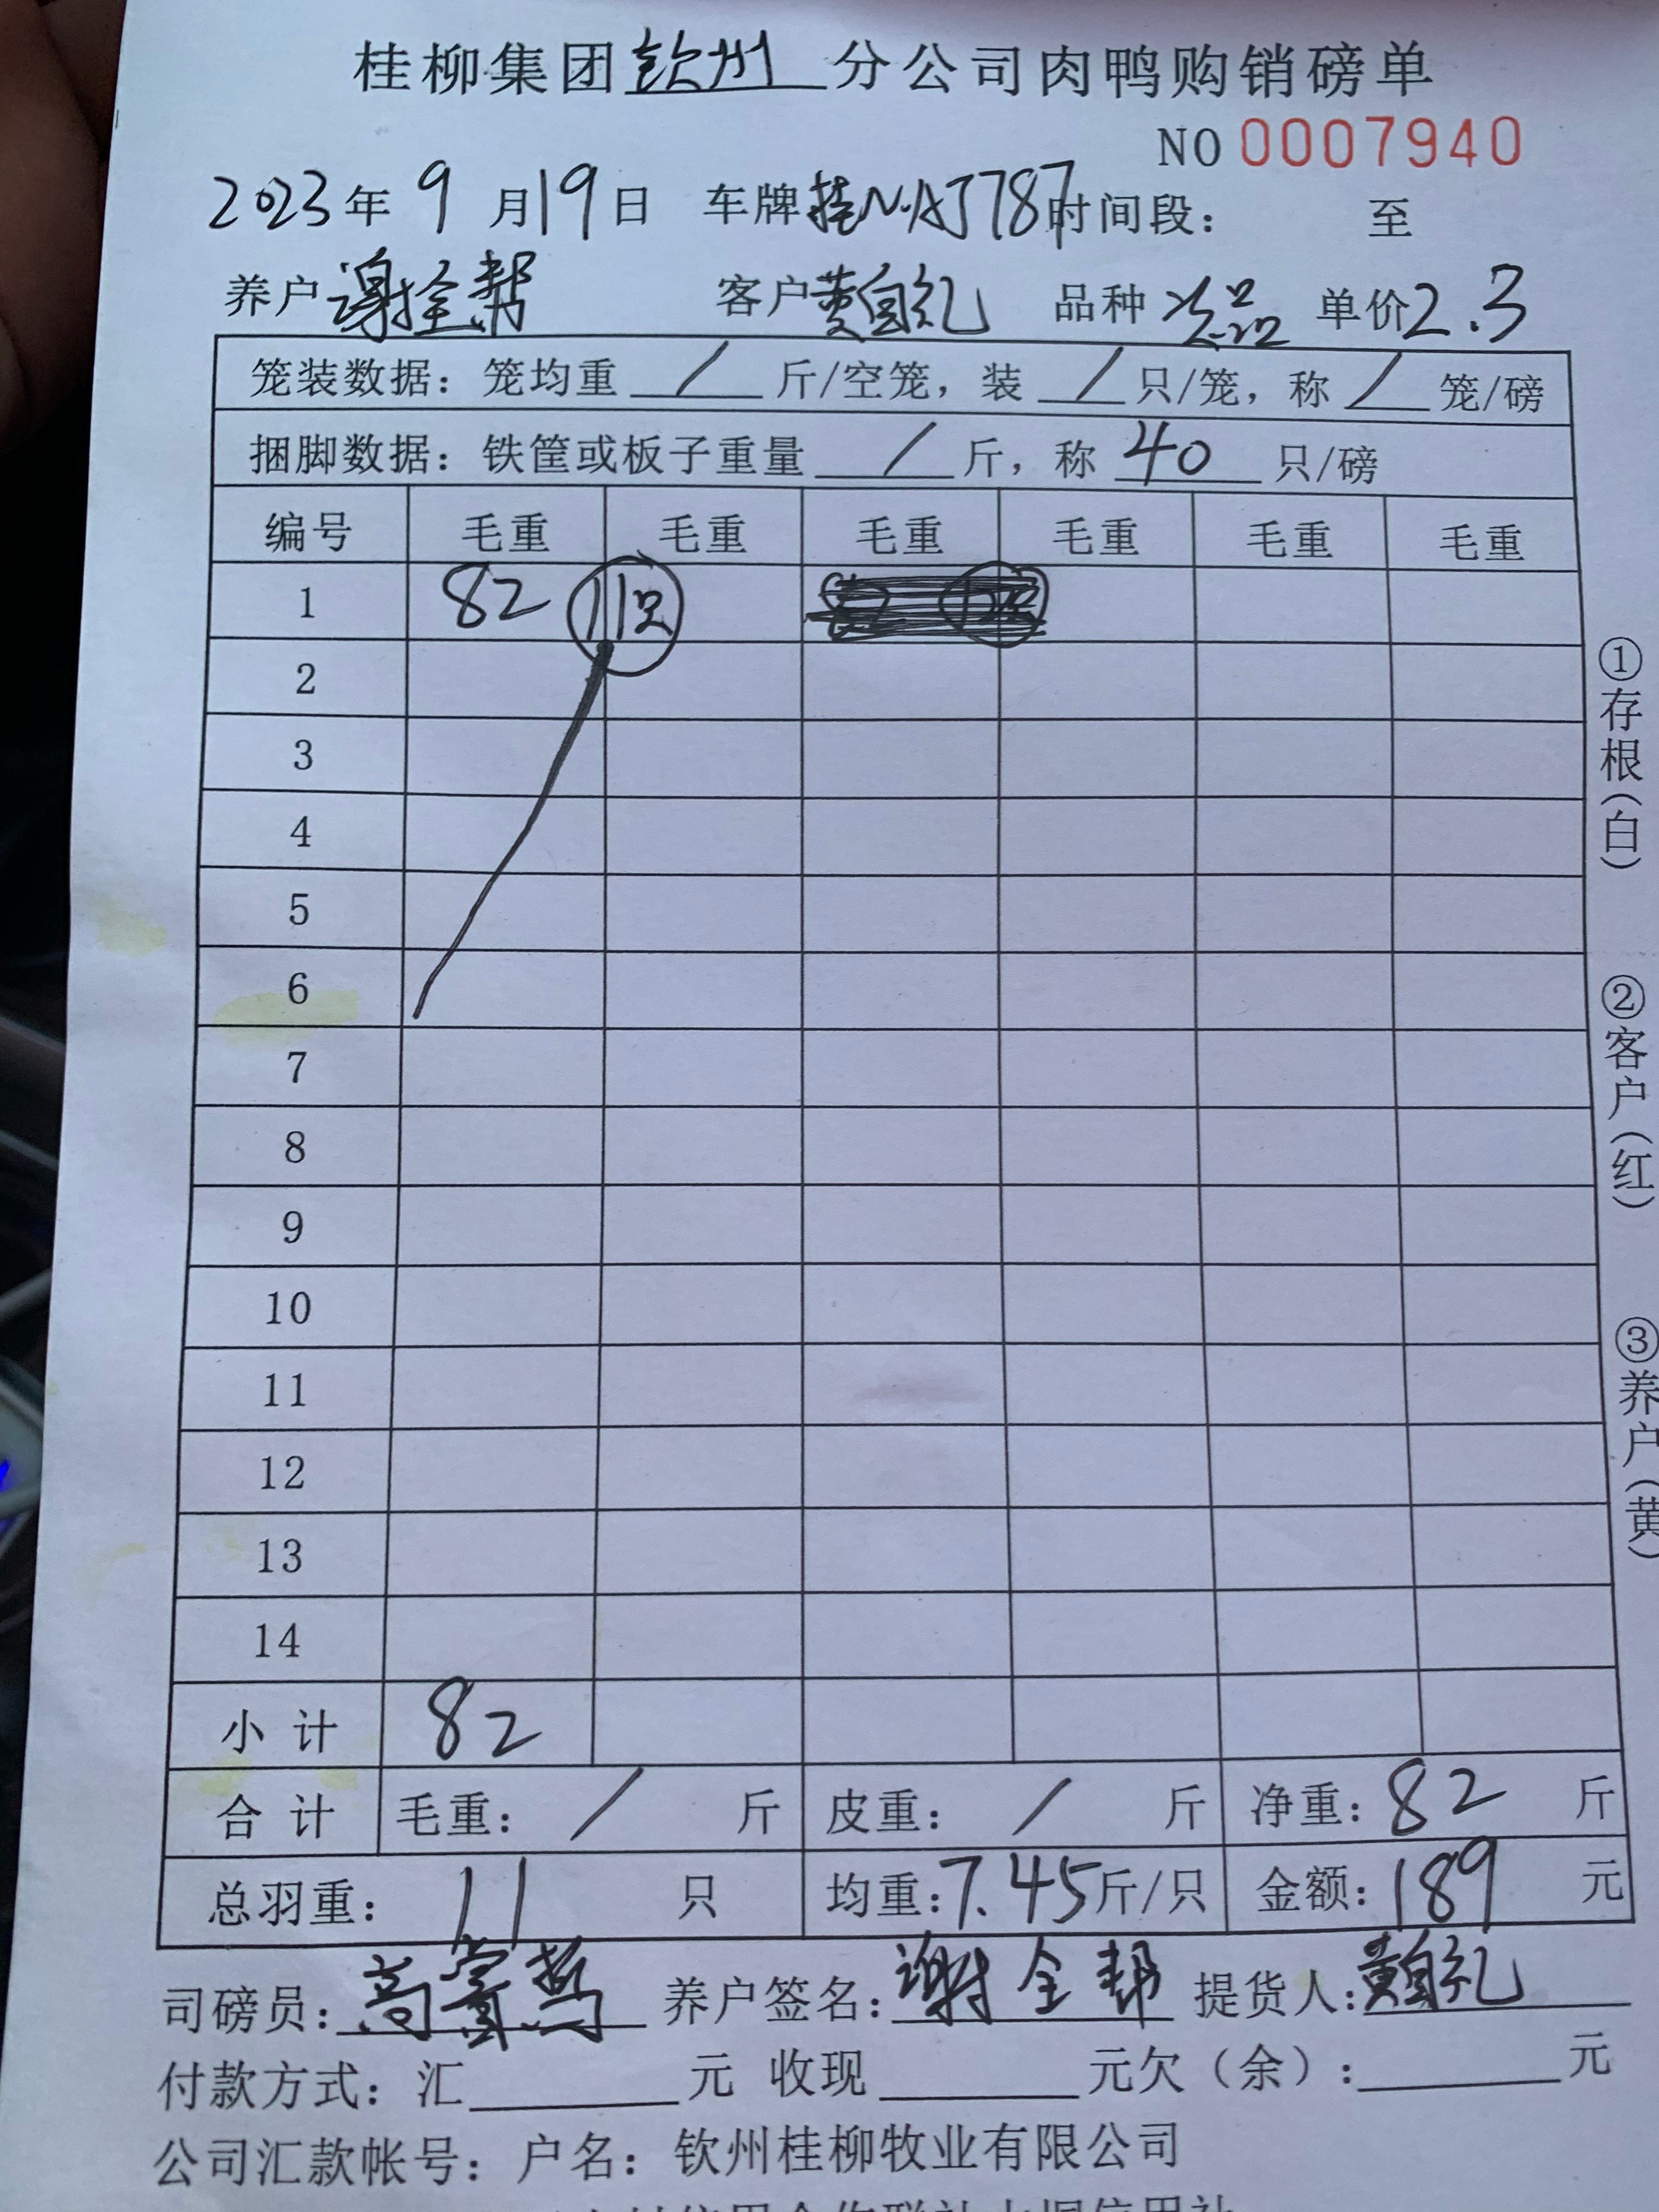 桂柳集团钦州分公司肉鸭购销磅单
NO 0007940
2023年9月19日 车牌桂N·AJ787时间段： 至
养户谢全帮 客户黄自礼 品种次品 单价2.3
笼装数据：笼均重/斤/空笼，装/只/笼，称/笼/磅
捆脚数据：铁筐或板子重量/斤，称40只/磅
编号 毛重 毛重 毛重 毛重 毛重 毛重
1 82 11只
2
3
4
5
6
7
8
9
10
11
12
13
14
小计 82
合计 毛重：/斤 皮重：/斤 净重：82斤
总羽重：11只 均重：7.45斤/只 金额：189元
司磅员：高 养户签名：谢全帮 提货人：黄自礼
付款方式：汇 元 收现 元欠（余）： 元
公司汇款帐号：户名：钦州桂柳牧业有限公司
①存根（白）
②客户（红）
③养户（黄）